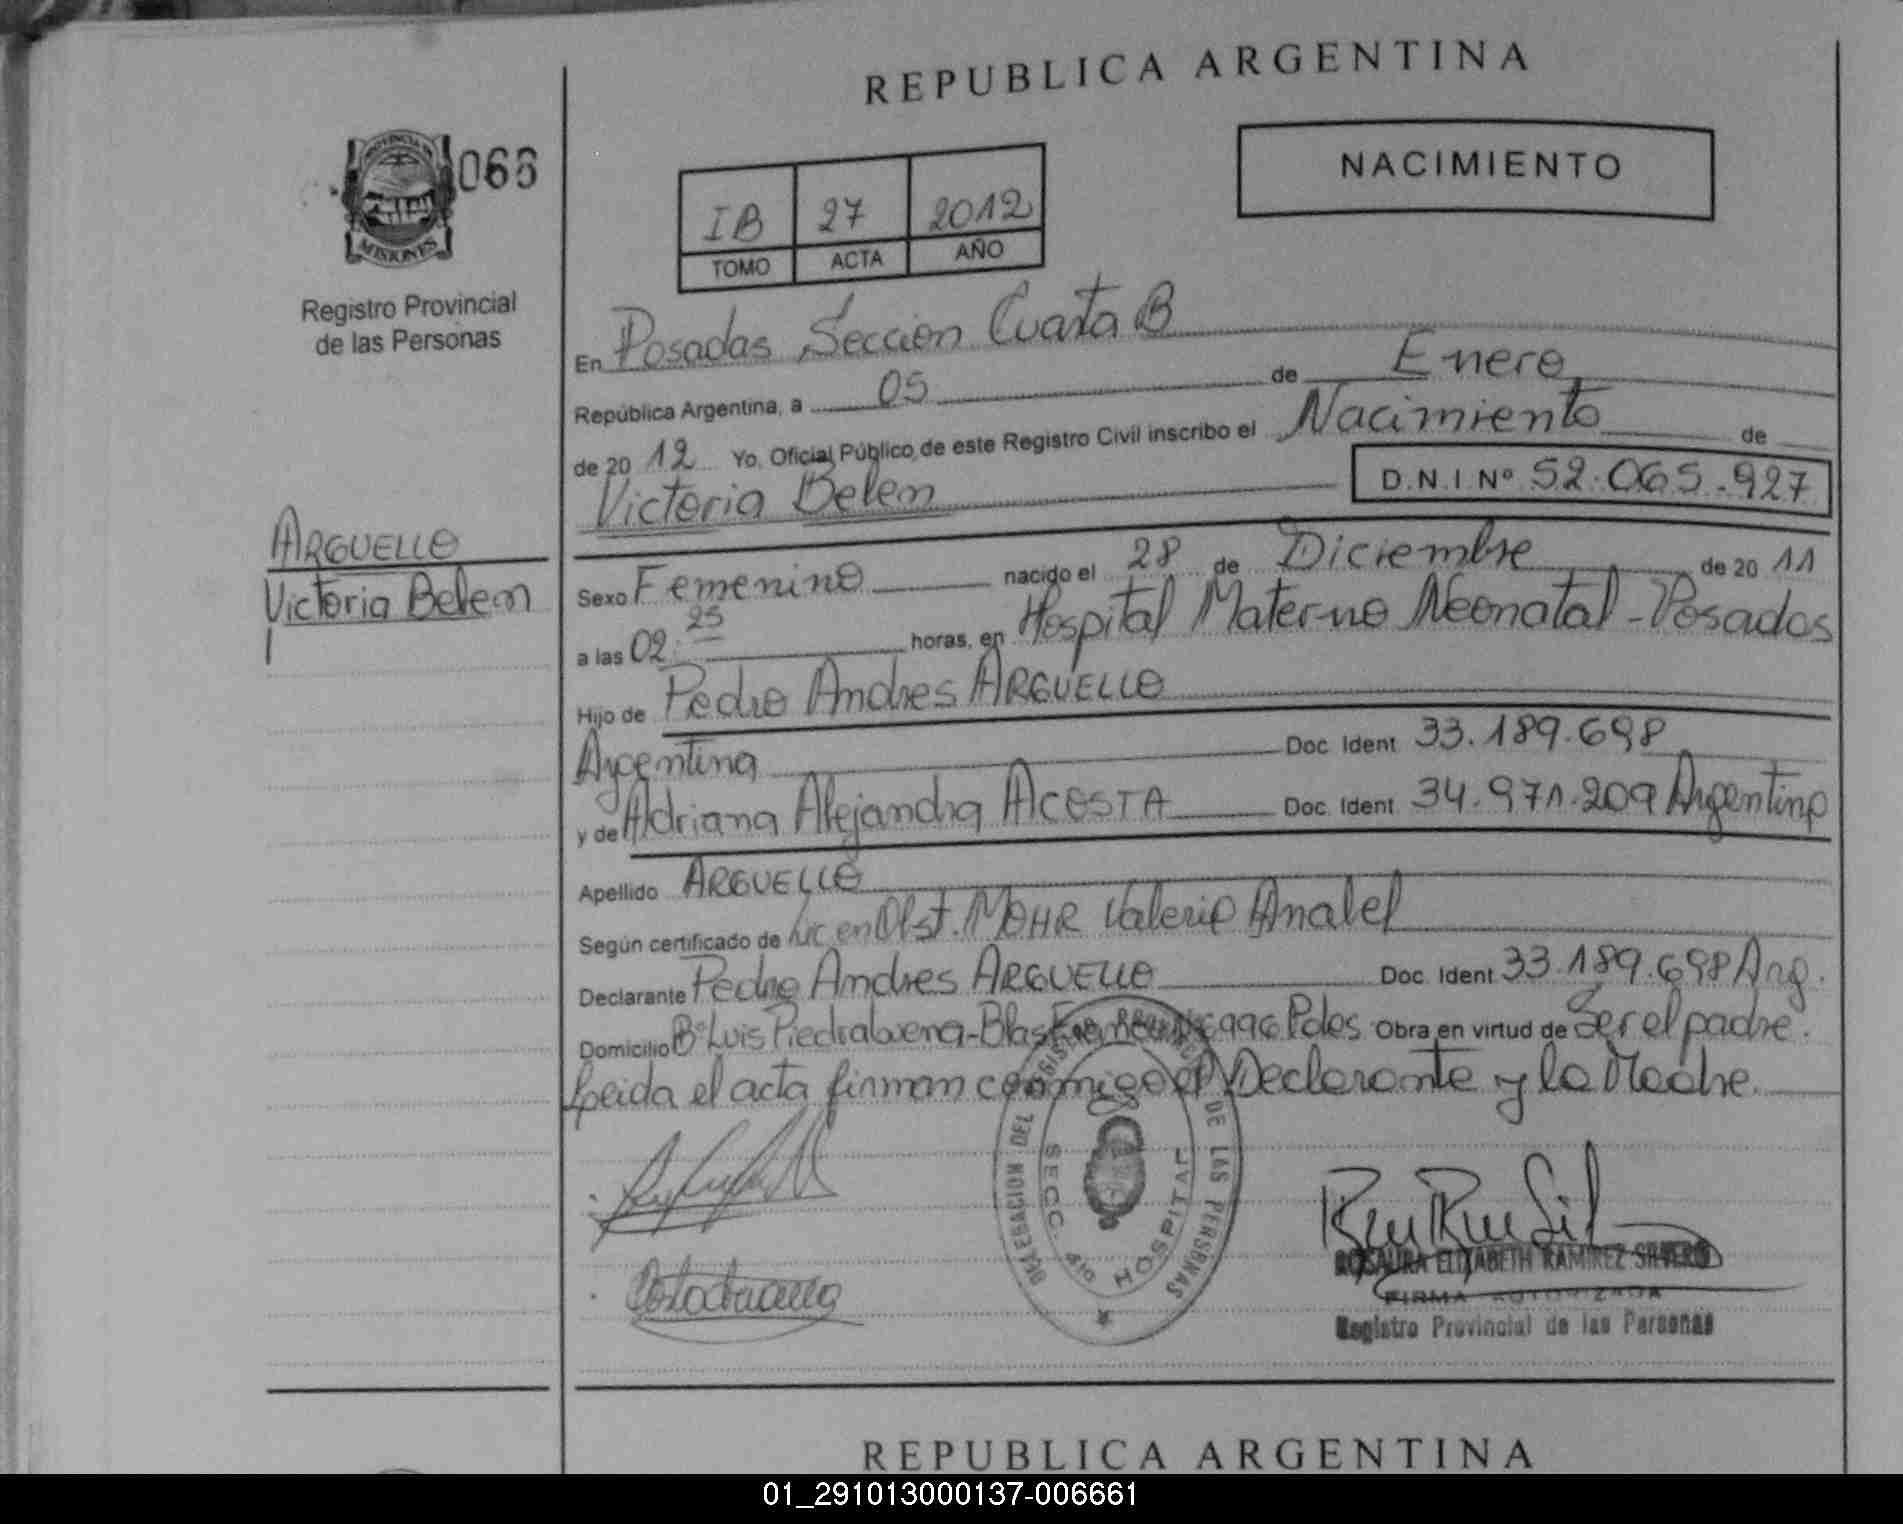 REPUBLICA ARGENTINA
PROVINCIA DE
MISIONES
066
Registro Provincial
de las Personas
NACIMIENTO
IB 27 2012
TOMO ACTA AÑO
En Posadas Sección Cuarta B
República Argentina, a 05 de Enero
de 20 12 Yo, Oficial Público de este Registro Civil inscribo el Nacimiento de
Victoria Belem D.N.I Nº 52.065.927
ARGUELLO
Victoria Belem
Sexo Femenino nacido el 28 de Diciembre de 20 11
a las 02:25 horas, en Hospital Materno Neonatal - Posadas
Hijo de Pedro Andres ARGUELLO
Argentina Doc. Ident 33.189.698
y de Adriana Alejandra ACOSTA Doc. Ident 34.971.209 Argentina
Apellido ARGUELLO
Según certificado de Lic en Obst. MOHR Valeria Anabel
Declarante Pedro Andres ARGUELLO Doc. Ident 33.189.698 Arg.
Domicilio Bº Luis Piedrabuena - Blas 6996 Pdas Obra en virtud de Ser el padre.
Leida el acta firman conmigo el Declarante y la Madre
DELEGACION DEL REGISTRO PROVINCIAL DE LAS PERSONAS
SECC. 4ta HOSPITAL
ROSAURA ELIZABETH RAMIREZ SILVERO
FIRMA AUTORIZADA
Registro Provincial de las Personas
REPUBLICA ARGENTINA
01_291013000137-006661